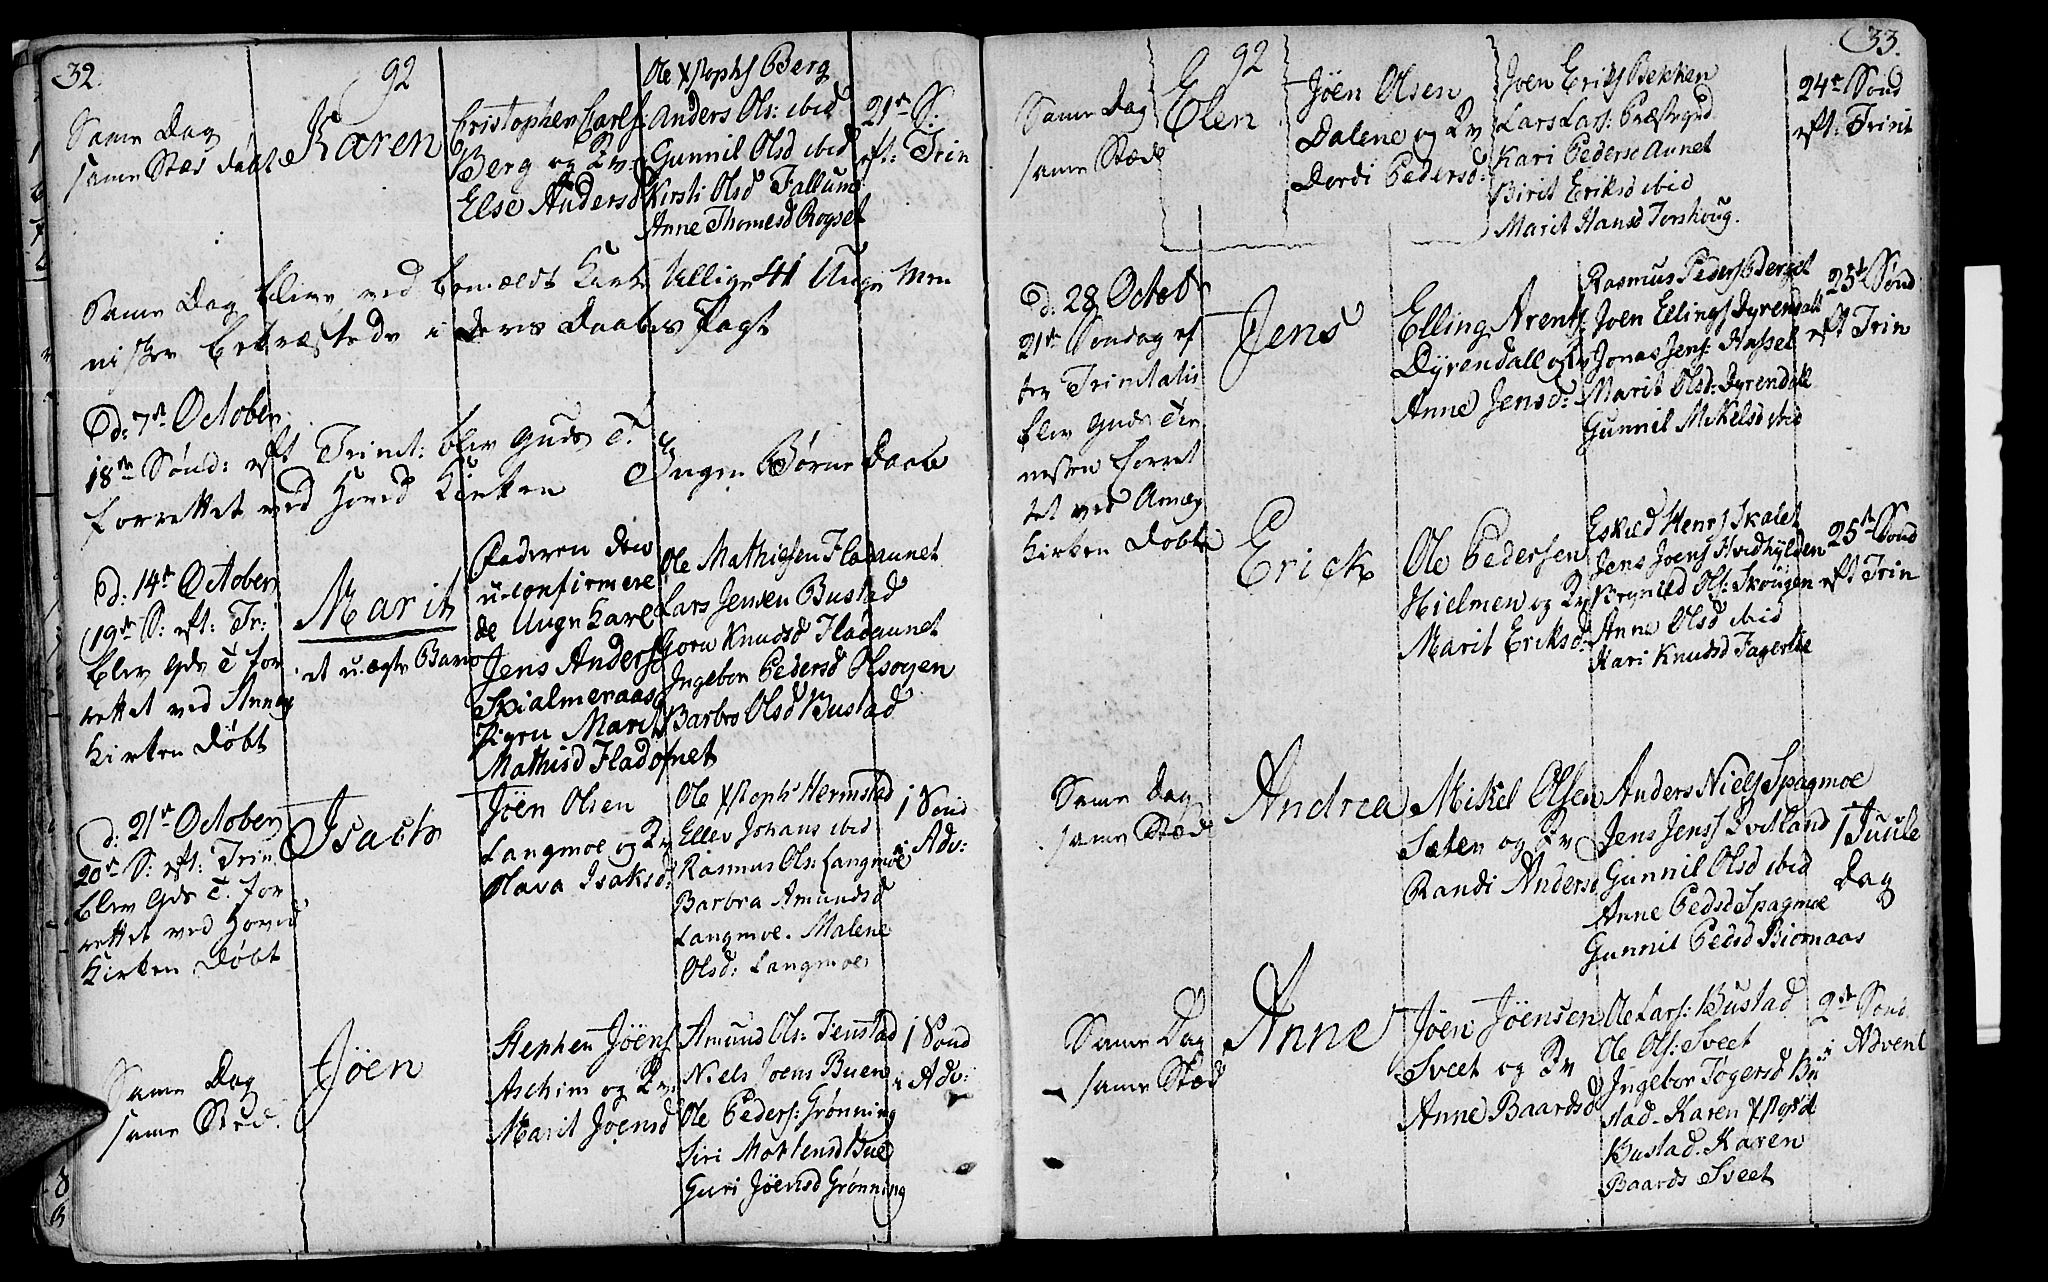 32.
92
Same Dag
same Stæd döbt
Karen
Cristopher Carls:
Berg og Kv
Else Andersd
Ole Xstophs Berg
Anders Ols: ibid
Gunnil Olsd ibid
Kirsti Olsd Fallum
Anne Thomesd Røgset
21de S:
eft: Trin
Same Dag blev ved bemældt Kirke tillige 41 Unge Men
nisker bekræftede i deres Daabes Pagt
d: 7de October
18de Sønd: eft Trinit: blev Guds T.
forrettet ved Hoved Kirken
Ingen Børne Daab
d: 14de October
19de S: eft: Tr:
blev Gds T for
rettet ved Annex
Kirken døbt
Marit
et uægte Barn
Faderen den
u-confirmere
de Unge Karl
Jens Anders
Skialmeraas
Pigen Marit
Mathisd Fladaunet
Ole Mathiesen Fladaunet
Lars Jensen Bustad
Goru Knudsd Fladaunet
Ingebor Pedersd Olsøyen
Barbro Olsd Bustad
d: 21de October
20de S: eft: Trin
blev Gds T. for
rettet ved Hoved
Kirken Døbt
Isach
Jöen Olsen
Langmoe og Kv
Olava Isaksd:
Ole Xstophs Hermstad
Ellev Johans ibid
Rasmus Ols: Langmoe
Barbra Amundsd
Langmoe. Malene
Olsd: Langmoe
1 Sönd
i Adv:
Same Dag
same Sted.
Jöen
Stephen Jöens
Aschim og Kv
Marit Jöensd
Amund Ols: Jenstad
Niels Joens Buen
Ole Peders: Grønning
Siri Mortensd Bue
Guri Jöensd Grønning
1 Sond
i Adv:
33.
92
Same Dag
same Stæde
Elen
Jöen Olsen
Dalene og Kv
Dordi Pedersd:
Joen Eriks Bekken
Lars Lars: Præstegrd
Kari Pederse Aunet
Birit Eriksd ibid
Marit Hansd Torshoug.
24de Sönd
eft: Trinit
d: 28 Octobr
21de Søndag ef
ter Trinitatis
blev Guds Tie
nesten forret
tet ved Annex
Kirken Döbt
Jens
Elling Arents:
Dyrendall og Kv
Anne Jensd:
Rasmus Peders Berget
Joen Ellings Dyrendall
Jonas Jens: Hassel
Marit Olsd: Dyrendall
Gunnil Mikelsd ibid
25de Sönd
eft Trin
Erick
Ole Pedersen
Hielmen og Kv
Marit Eriksd:
Eskild Henrs Skalet
Jens Joens Hvidhylden
Brynild Ols: Skougen
Anne Olsd ibid
Kari Knudsd Fagerlie
25de Sönd
eft Trin
Same Dag
same Stæde
Andrea
Mikel Olsen
Sæter og Kv
Randi Andersd
Anders Niels Spagmoe
Jens Jens Svitland
Gunnil Olsd ibid
Anne Pedsd Spagmoe
Gunnil Pedsd Biørnaas
1 Juule
Dag
Same Dag
same Stæd
Anne
Jöen Jöensen
Sveet og Kv
Anne Baardsd
Ole Lars: Bustad
Ole Ols: Sveet
Ingebor Tøgersd Bu
stad. Karen Xstopsd
Bustad. Karen
Baards Sveet
2de Sönd
i Advent